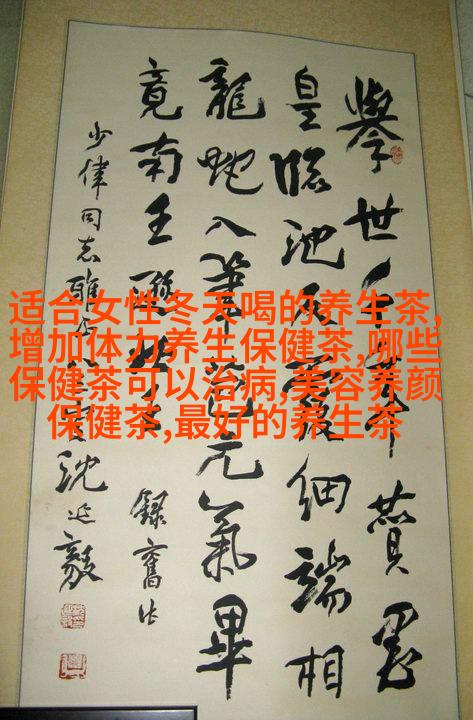 适合女性冬天喝的养生茶,
增加体力养生保健茶,哪些
保健茶可以治病,美容养颜
保健茶,最好的养生茶
舉世千贊墨
皇臨池細端相
龍蛇入筆元氣畢
竟南王遜王錄舊作
少偉同志雅沈延毅